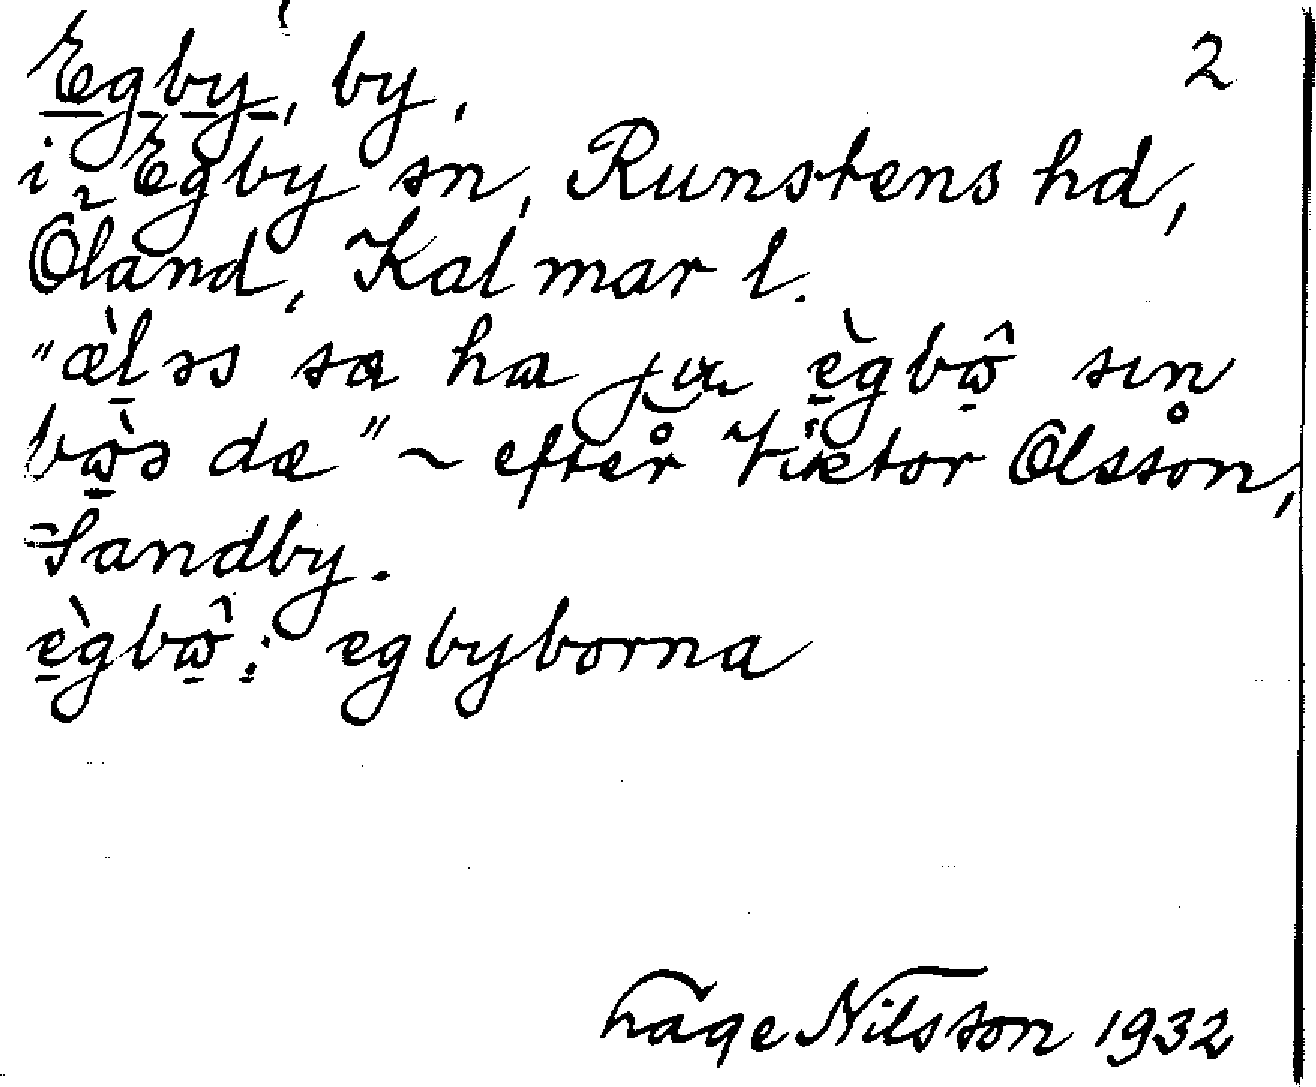 Egby, by, 2
i Egby sn, Runstens hd,
Öland, Kalmar l.
"æ̀ləs sa ha ègbꞷ̂ sın
bꞷ̀s da" ~ efter Viktor Olsson,
Sandby.
ègbꞷ̂: egbyborna
Nilsson 1932